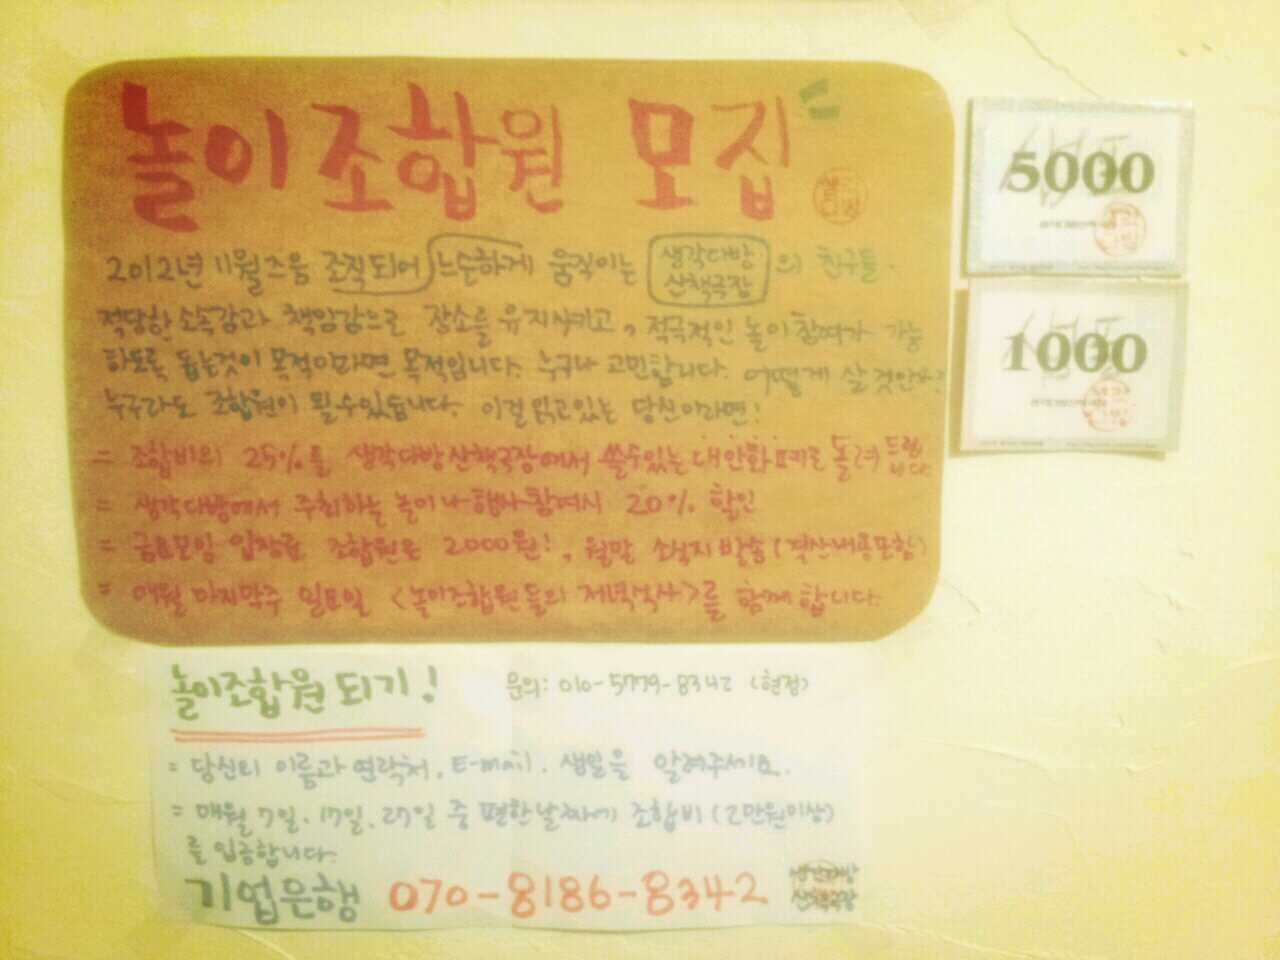 놀이조합원 모집
2012년 11월즈음 조직되어 느슨하게 움직이는 생각다방 산책극장 의 친구들.
적당한 소속감과 책임감으로 장소를 유지시키고, 적극적인 놀이참여가 가능
하도록 돕는것이 목적이라면 목적입니다. 누구나 고민합니다. 어떻게 살것인가?
누구라도 조합원이 될수있습니다. 이걸 읽고있는 당신이라면!
= 조합비의 25%를 생각다방산책극장에서 쓸수있는 대안화폐로 돌려드립니다
= 생각다방에서 주최하는 놀이나 행사참여시 20% 할인
= 금요모임 입장료 조합원은 2000원!, 월말 소식지 발송(결산내용포함)
= 매월 마지막주 일요일 <놀이조합원들의 저녁식사>를 함께 합니다.
5000
1000
놀이조합원 되기!
문의: 010-5779-8342 (현정)
= 당신의 이름과 연락처, E-mail, 생일을 알려주세요.
= 매월 7일, 17일, 27일 중 편한날짜에 조합비(2만원이상)
를 입금합니다.
기업은행 070-8186-8342 생각다방
산책극장